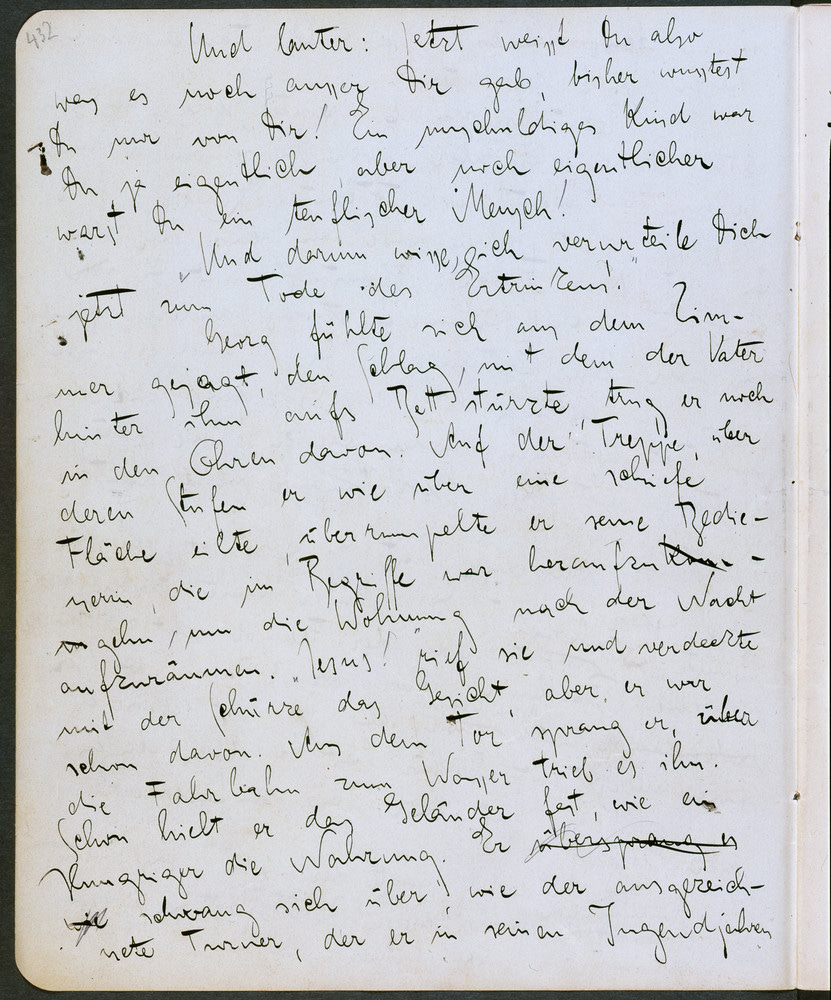 432
Und lauter: Jetzt weisst Du also
was es noch ausser Dir gab, bisher wusstest
Du nur von Dir! Ein unschuldiges Kind war
Du ja eigentlich, aber noch eigentlicher
warst Du ein teuflischer Mensch!
„Und darum wisse, ich verurteile Dich
jetzt zum Tode des Ertrinkens!“
Georg fühlte sich aus dem Zim-
mer gejagt, den Schlag, mit dem der Vater
hinter ihm aufs Bett stürzte, trug er noch
in den Ohren davon. Auf der Treppe, über
deren Stufen er wie über eine schiefe
Fläche eilte, überrumpelte er seine Bedie-
nerin, die im Begriffe war heraufzukom-
gehn, um die Wohnung nach der Nacht
aufzuräumen. „Jesus!“ rief sie und verdeckte
mit der Schürze das Gesicht, aber er war
schon davon. Aus dem Tor sprang er, über
die Fahrbahn zum Wasser trieb es ihn.
Schon hielt er das Geländer fest, wie ein
Hungriger die Nahrung. Er übersprang es
wie schwang sich über, wie der ausgezeich-
nete Turner, der er in seinen Jugendjahren